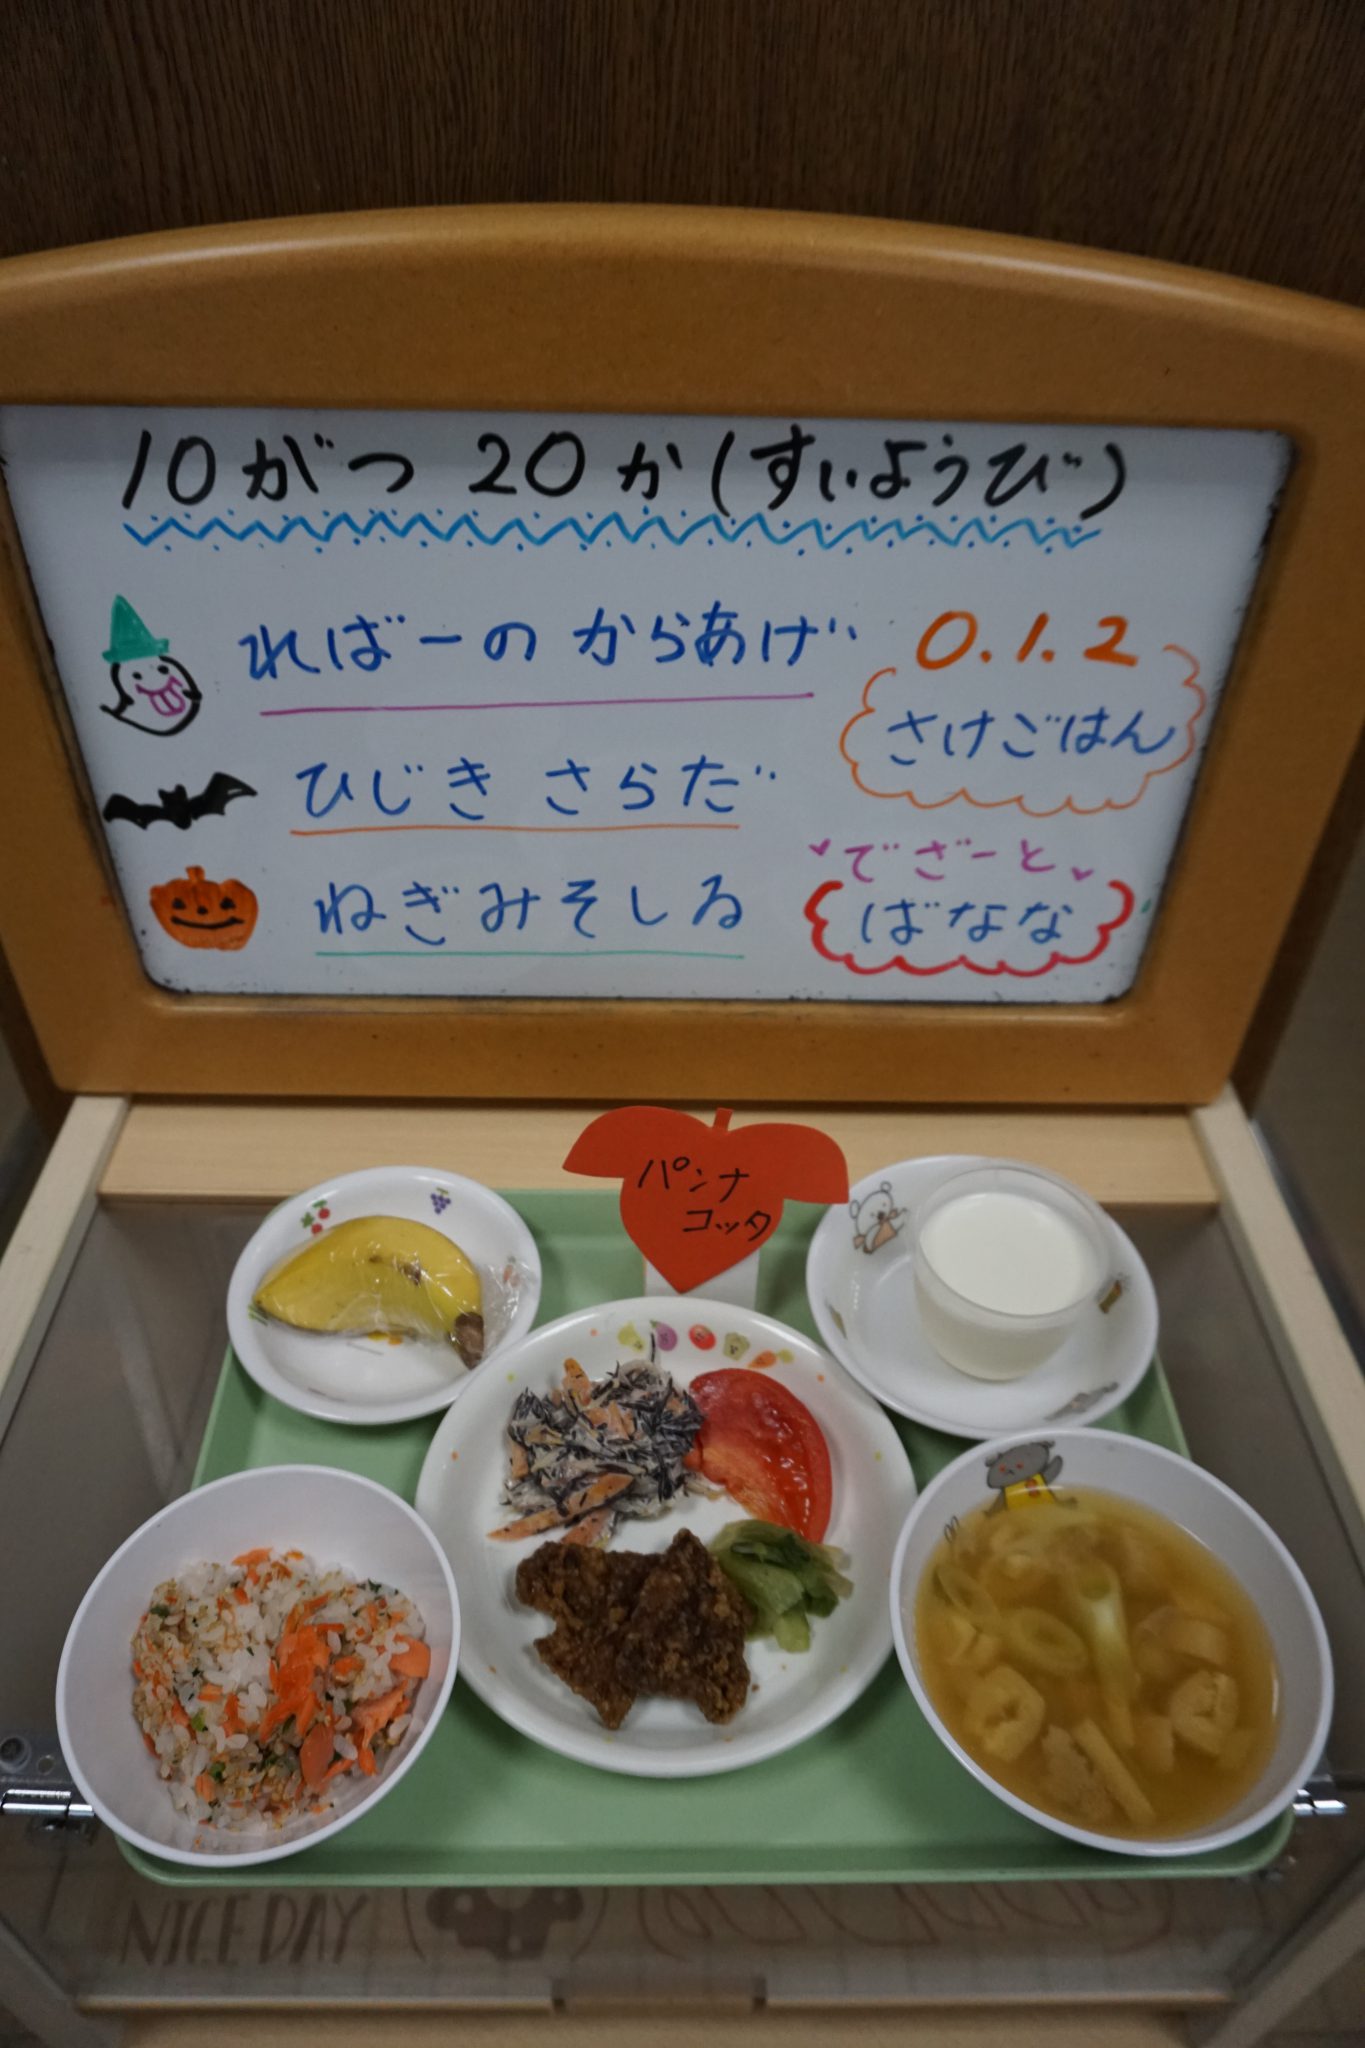 10がつ 20か(すいようび)
ればーの からあげ
0.1.2
さけごはん
ひじき さらだ
でざーと
ばなな
ねぎみそしる
パンナ
コッタ
NICE DAY